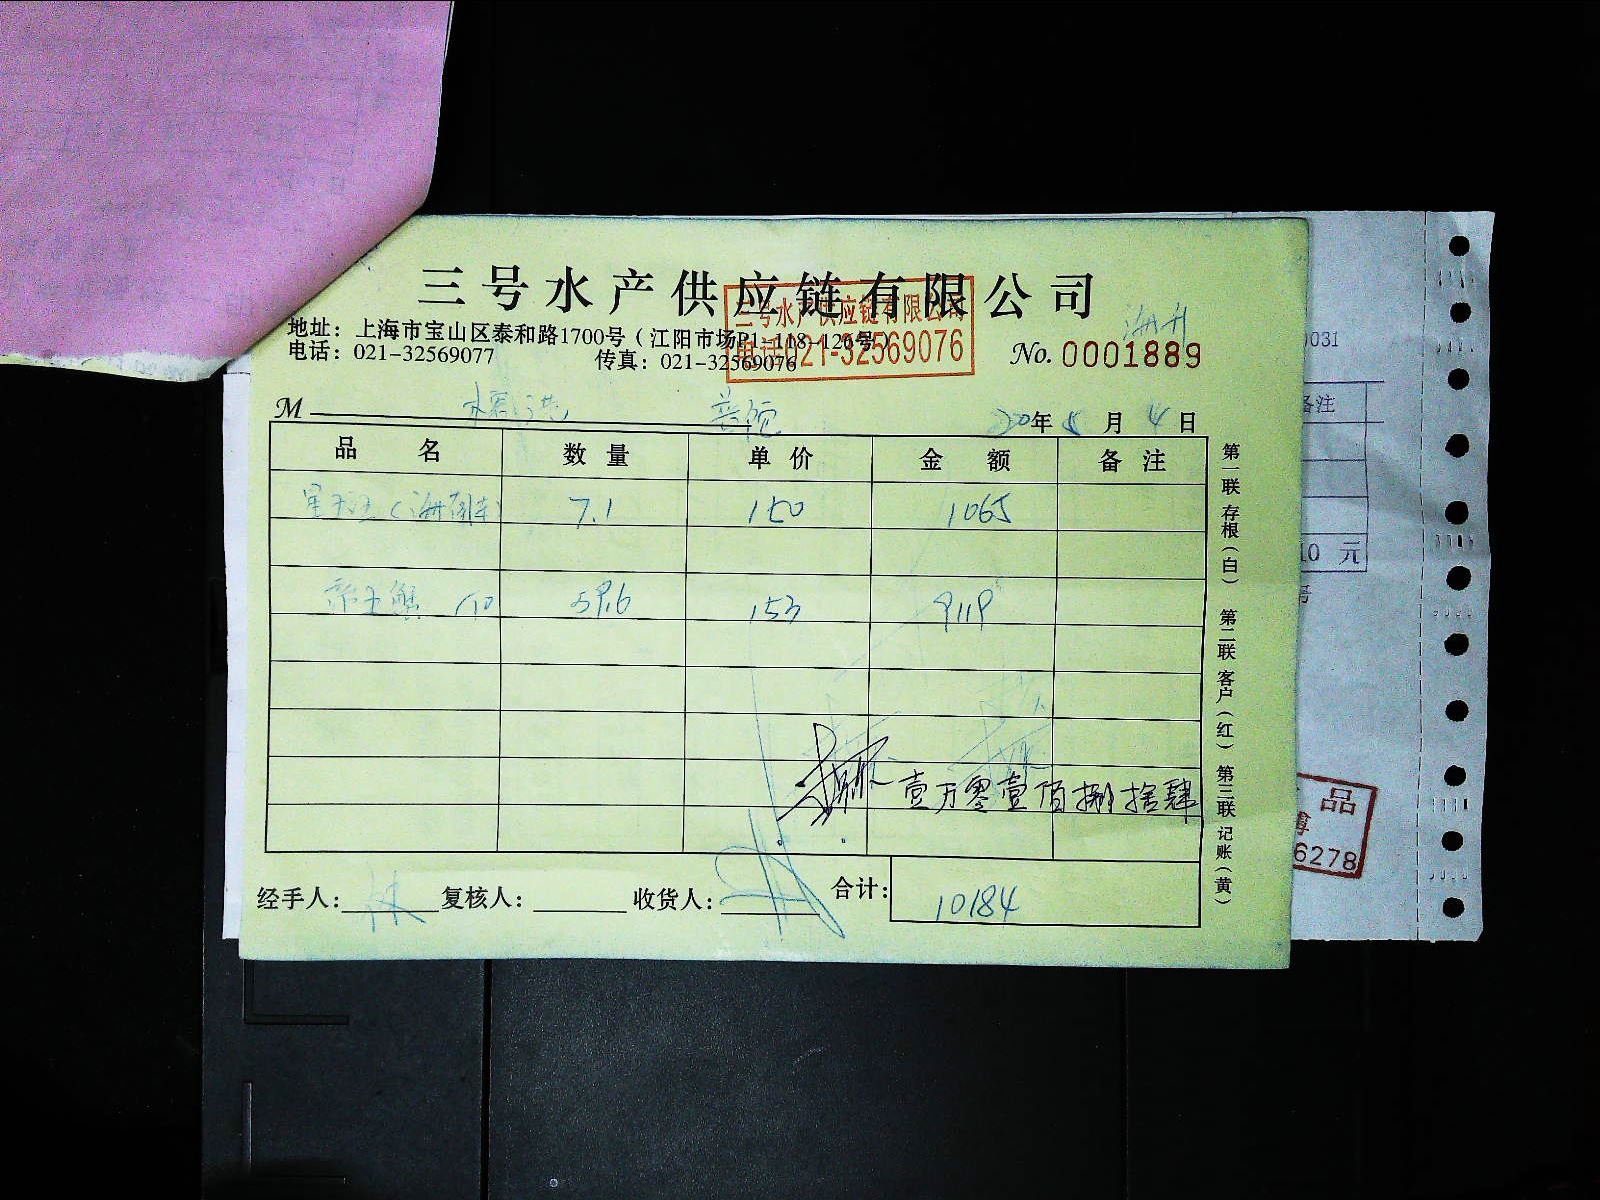 三号水产供应链有限公司
三号水产供应链有限公司
地址：上海市宝山区泰和路1700号（江阳市场P1-118-126号）
电话：021-32569077 传真：021-32569076
电话021-32569076
No. 0001889
M
20年8月4日
品名 数量 单价 金额 备注
7.1 150 1065
帝王蟹 59.6 153 9119
壹万零壹佰捌拾肆
经手人：林 复核人： 收货人： 合计：10184
第一联 存根（白） 第二联 客户（红） 第三联 记账（黄）
0031
备注
10 元
号
品
博
6278